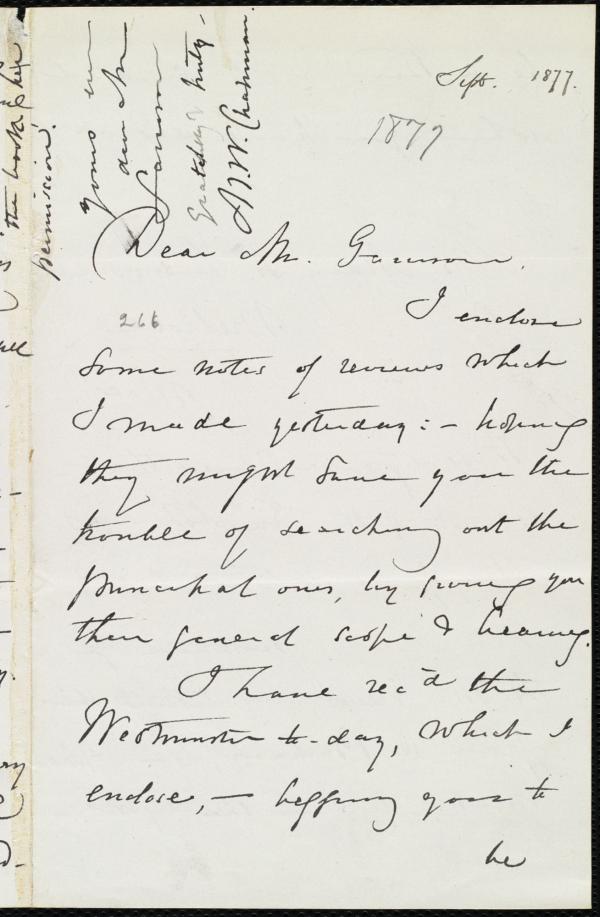 Sept. 1877.
1877
Dear Mr. Garrison,
266
I enclose
some notes of reviews which
I made yesterday: - hoping
they might save you the
trouble of searching out the
principal ones, by giving you
their general scope & bearing.
I have rec'd the
Westminster to-day, which I
enclose, - begging you to
be
yours ever
dear Mr
Garrison
gratefully & truly -
M. W. Chapman.
the book & her
permission.